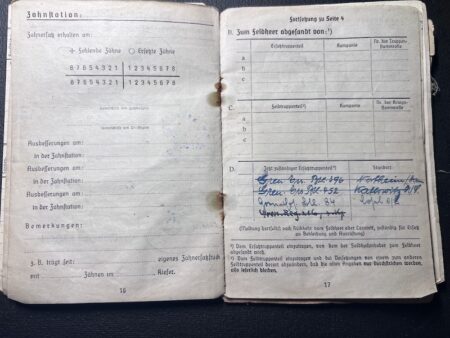 Zahnstation:
Zahnersatz erhalten am:
+ Fehlende Zähne O Ersetzte Zähne
87654321 | 12345678
87654321 | 12345678
Ausbesserungen am:
in der Zahnstation:
Ausbesserungen am:
in der Zahnstation:
Ausbesserungen am:
in der Zahnstation:
Bemerkungen:
z. B. trägt seit: eigenes Zahnersatzstück
mit Zähnen im Kiefer.
16
Fortsetzung zu Seite 4
B. Zum Feldheer abgesandt von:¹)
Ersatztruppenteil Kompanie Nr. der Truppen-stammrolle
a
b
c
C. Feldtruppenteil²) Kompanie Nr. der Kriegs-stammrolle
a
b
c
D. Jetzt zuständiger Ersatztruppenteil³) Standort
Gren. Ers. Btl.
Gren. Ers. Btl. 452 Kattowitz O/S
84
(Meldung dortselbst nach Rückkehr vom Feldheer oder Lazarett, zuständig für Ersatz
an Bekleidung und Ausrüstung)
¹) Vom Ersatztruppenteil einzutragen, von dem der Wehrpaßinhaber zum Feldheer
abgesandt wird.
²) Vom Feldtruppenteil einzutragen und bei Versetzungen von einem zum anderen
Feldtruppenteil derart abzuändern, daß die alten Angaben nur durchstrichen werden,
also leserlich bleiben.
17